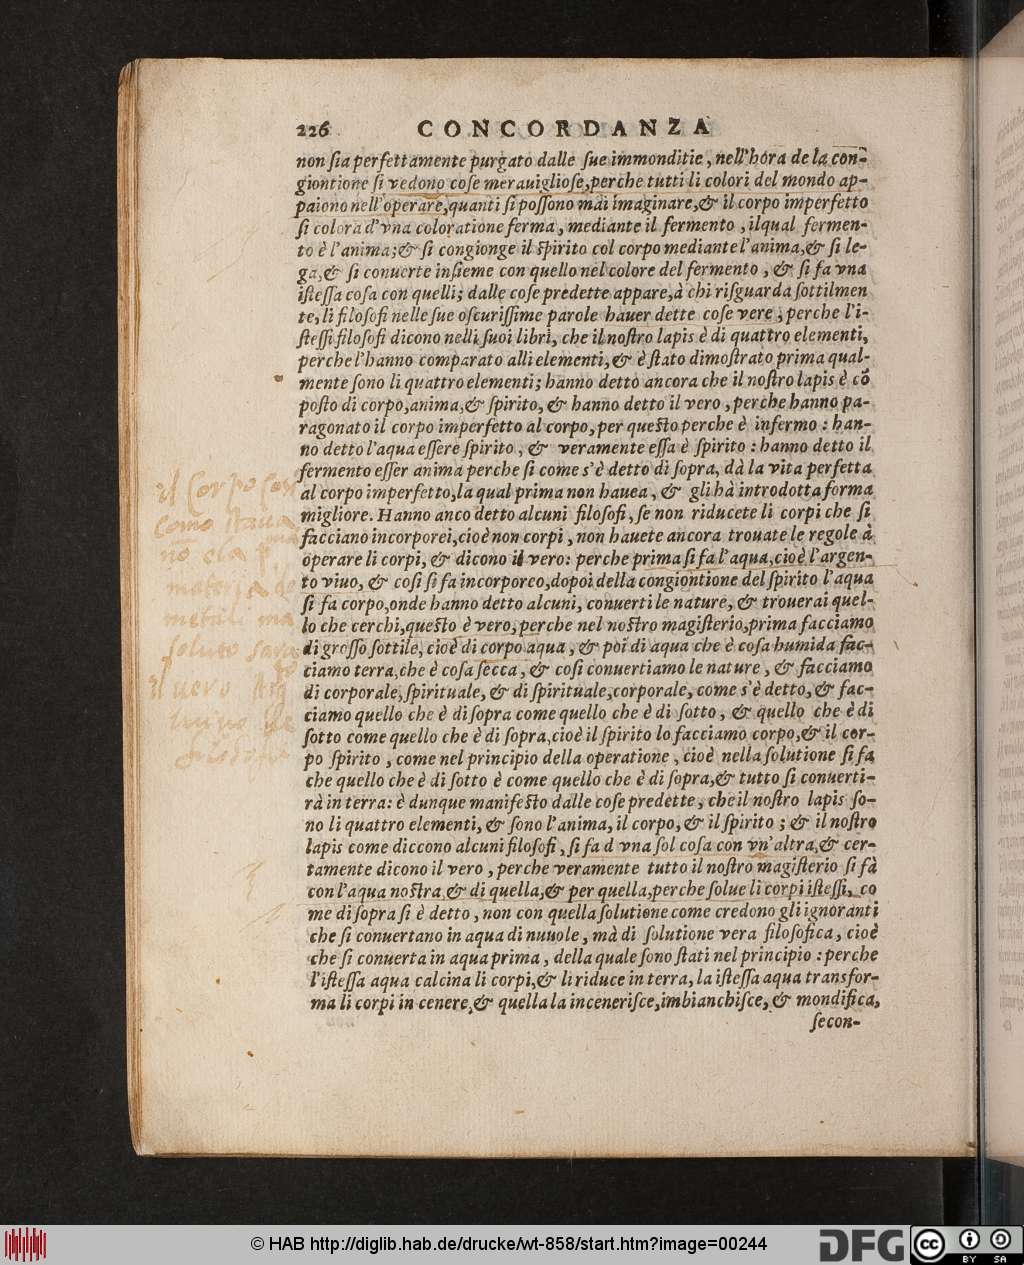 226 CONCORDANZA
non ſia perfettamente purgato dalle ſue immonditie, nell'hora de la con-
giontione ſi vedono coſe merauiglioſe, perche tutti li colori del mondo ap-
paiono nell'operare, quanti ſi poſſono mai imaginare, & il corpo imperfetto
ſi colora d'vna coloratione ferma, mediante il fermento, ilqual fermen-
to è l'anima; & ſi congionge il ſpirito col corpo mediante l'anima, & ſi le-
ga, & ſi conuerte inſieme con quello nel colore del fermento, & ſi fa vna
iſteſſa coſa con quelli; dalle coſe predette appare, à chi riſguarda ſottilmen
te, li filoſofi nelle ſue oſcuriſſime parole hauer dette coſe vere; perche l'i-
ſteſſi filoſofi dicono nelli ſuoi libri, che il noſtro lapis è di quattro elementi,
perche l'hanno comparato alli elementi, & è ſtato dimoſtrato prima qual-
mente ſono li quattro elementi; hanno detto ancora che il noſtro lapis è cõ
poſto di corpo, anima, & ſpirito, & hanno detto il vero, perche hanno pa-
ragonato il corpo imperfetto al corpo, per queſto perche è infermo: han-
no detto l'aqua eſſere ſpirito, & veramente eſſa è ſpirito: hanno detto il
fermento eſſer anima perche ſi come s'è detto di ſopra, dà la vita perfetta
al corpo imperfetto, la qual prima non hauea, & gli hà introdotta forma
migliore. Hanno anco detto alcuni filoſofi, ſe non riducete li corpi che ſi
facciano incorporei, cioè non corpi, non hauete ancora trouate le regole à
operare li corpi, & dicono il vero: perche prima ſi fa l'aqua, cioè l'argen-
to viuo, & coſi ſi fa incorporeo, dopoi della congiontione del ſpirito l'aqua
ſi fa corpo, onde hanno detto alcuni, conuerti le nature, & trouerai quel-
lo che cerchi, queſto è vero, perche nel noſtro magiſterio, prima facciamo
di groſſo ſottile, cioè di corpo aqua, & poi di aqua che è coſa humida fac-
ciamo terra, che è coſa ſecca, & coſi conuertiamo le nature, & facciamo
di corporale, ſpirituale, & di ſpirituale, corporale, come s'è detto, & fac-
ciamo quello che è di ſopra come quello che è di ſotto, & quello che è di
ſotto come quello che è di ſopra, cioè il ſpirito lo facciamo corpo, & il cor-
po ſpirito, come nel principio della operatione, cioè nella ſolutione ſi fa
che quello che è di ſotto è come quello che è di ſopra, & tutto ſi conuerti-
rà in terra: è dunque manifeſto dalle coſe predette, che il noſtro lapis ſo-
no li quattro elementi, & ſono l'anima, il corpo, & il ſpirito; & il noſtro
lapis come diccono alcuni filoſofi, ſi fa d vna ſol coſa con vn'altra, & cer-
tamente dicono il vero, perche veramente tutto il noſtro magiſterio ſi fà
con l'aqua noſtra, & di quella, & per quella, perche ſolue li corpi iſteſſi, co
me di ſopra ſi è detto, non con quella ſolutione come credono gli ignoranti
che ſi conuertano in aqua di nuuole, mà di ſolutione vera filoſofica, cioè
che ſi conuerta in aqua prima, della quale ſono ſtati nel principio: perche
l'iſteſſa aqua calcina li corpi, & li riduce in terra, la iſteſſa aqua transfor-
ma li corpi in cenere, & quella la inceneriſce, imbianchiſce, & mondifica,
ſecon-
il Corpo
Como
metali ma
soluto sara
il uero
© HAB http://diglib.hab.de/drucke/wt-858/start.htm?image=00244
DFG cc BY SA